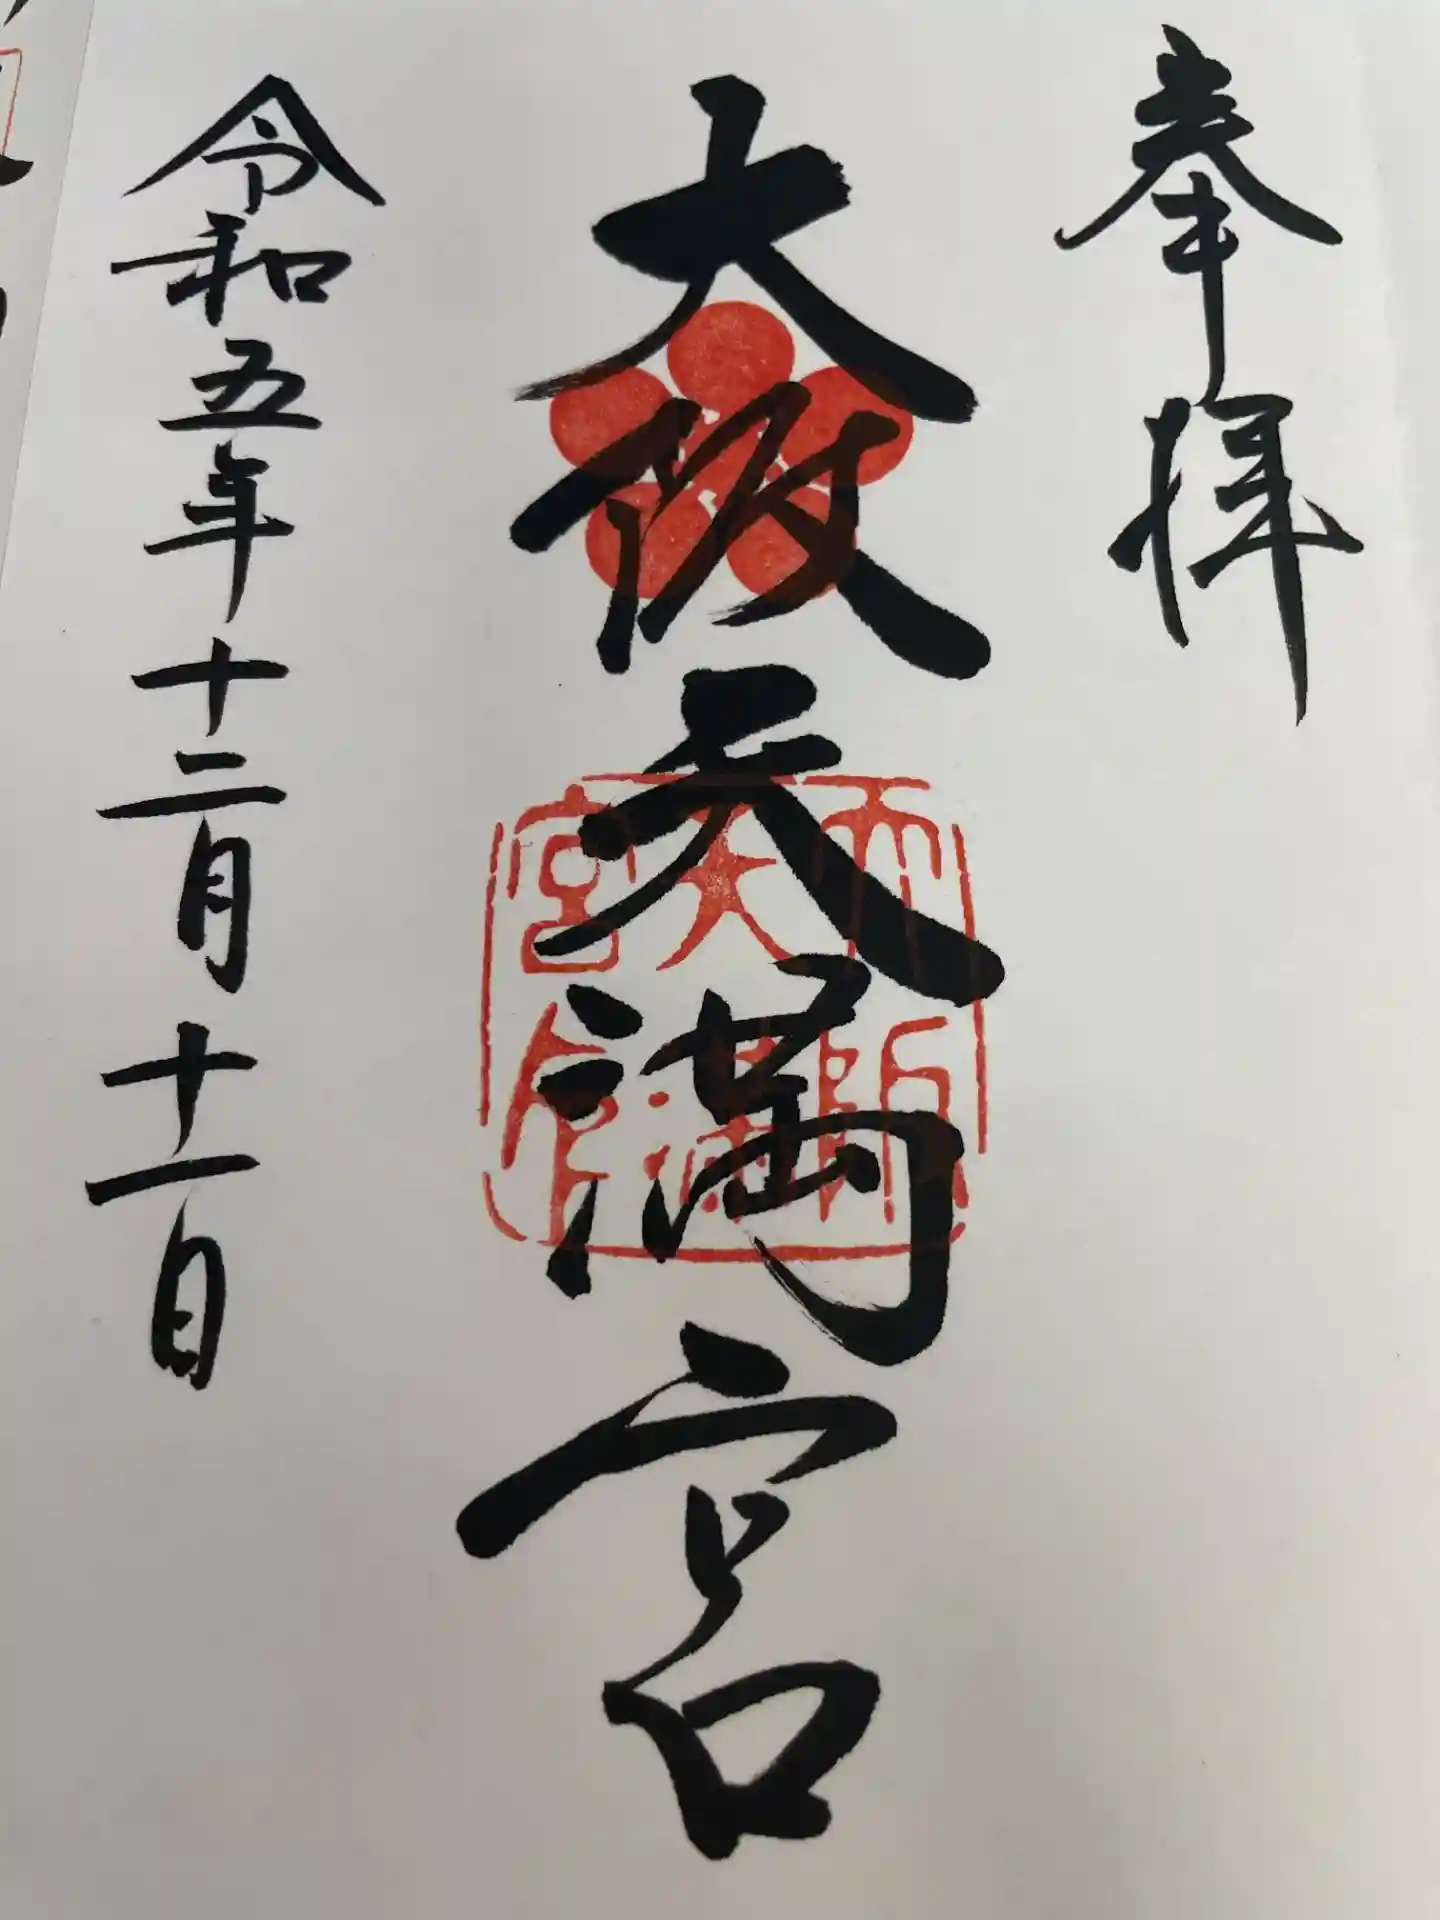 奉拝
大阪天満宮
大阪
天満
宮印
令和五年十二月十一日